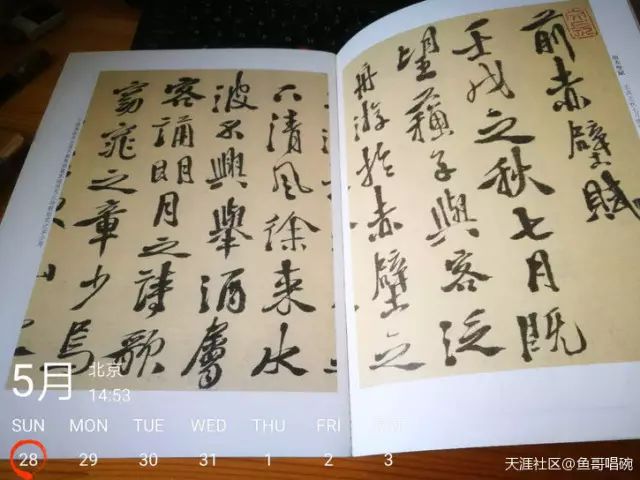 前赤壁賦
壬戌之秋七月既
望蘇子與客泛
舟游於赤壁之
下清風徐來水
波不興舉酒屬
客誦明月之詩歌
窈窕之章少焉
5月
北京
14:53
SUN MON TUE WED THU FRI
28 29 30 31 1 2 3
天涯社区@鱼哥唱碗